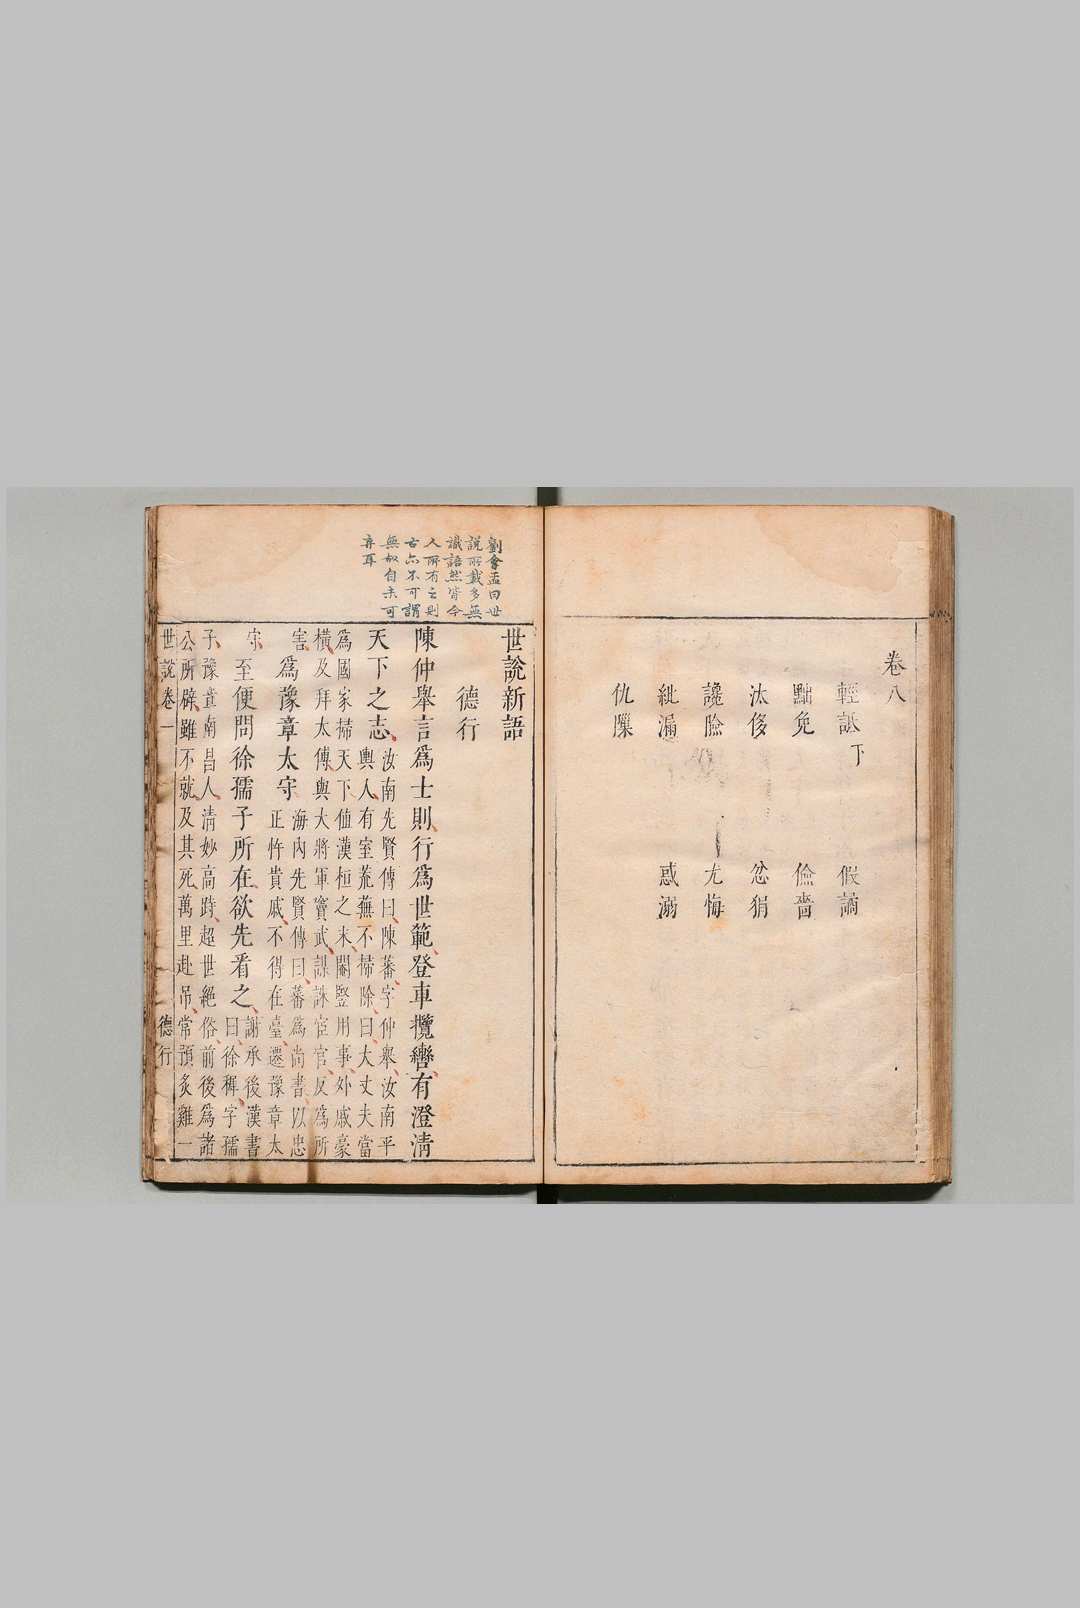 卷八
輕詆下 假譎
黜免 儉嗇
汰侈 忿狷
讒險 尤悔
紕漏 惑溺
仇隟
劉會孟曰世
說所載多無
識語然皆令
人所有之則
古亦不可謂
無如自未可
弃耳
世說新語
德行
陳仲舉言爲士則行爲世範登車攬轡有澄清
天下之志
汝南先賢傳曰陳蕃字仲舉汝南平
輿人有室荒蕪不掃除曰大丈夫當
爲國家掃天下值漢桓之末閹豎用事外戚豪
橫及拜太傅與大將軍竇武謀誅宦官反爲所
害
爲豫章太守
海內先賢傳曰蕃爲尚書以忠
正忤貴戚不得在臺遷豫章太
守
至便問徐孺子所在欲先看之
謝承後漢書
曰徐穉字孺
子豫章南昌人清妙高跱超世絕俗前後爲諸
公所辟雖不就及其死萬里赴吊常預炙雞一
世說卷一 德行